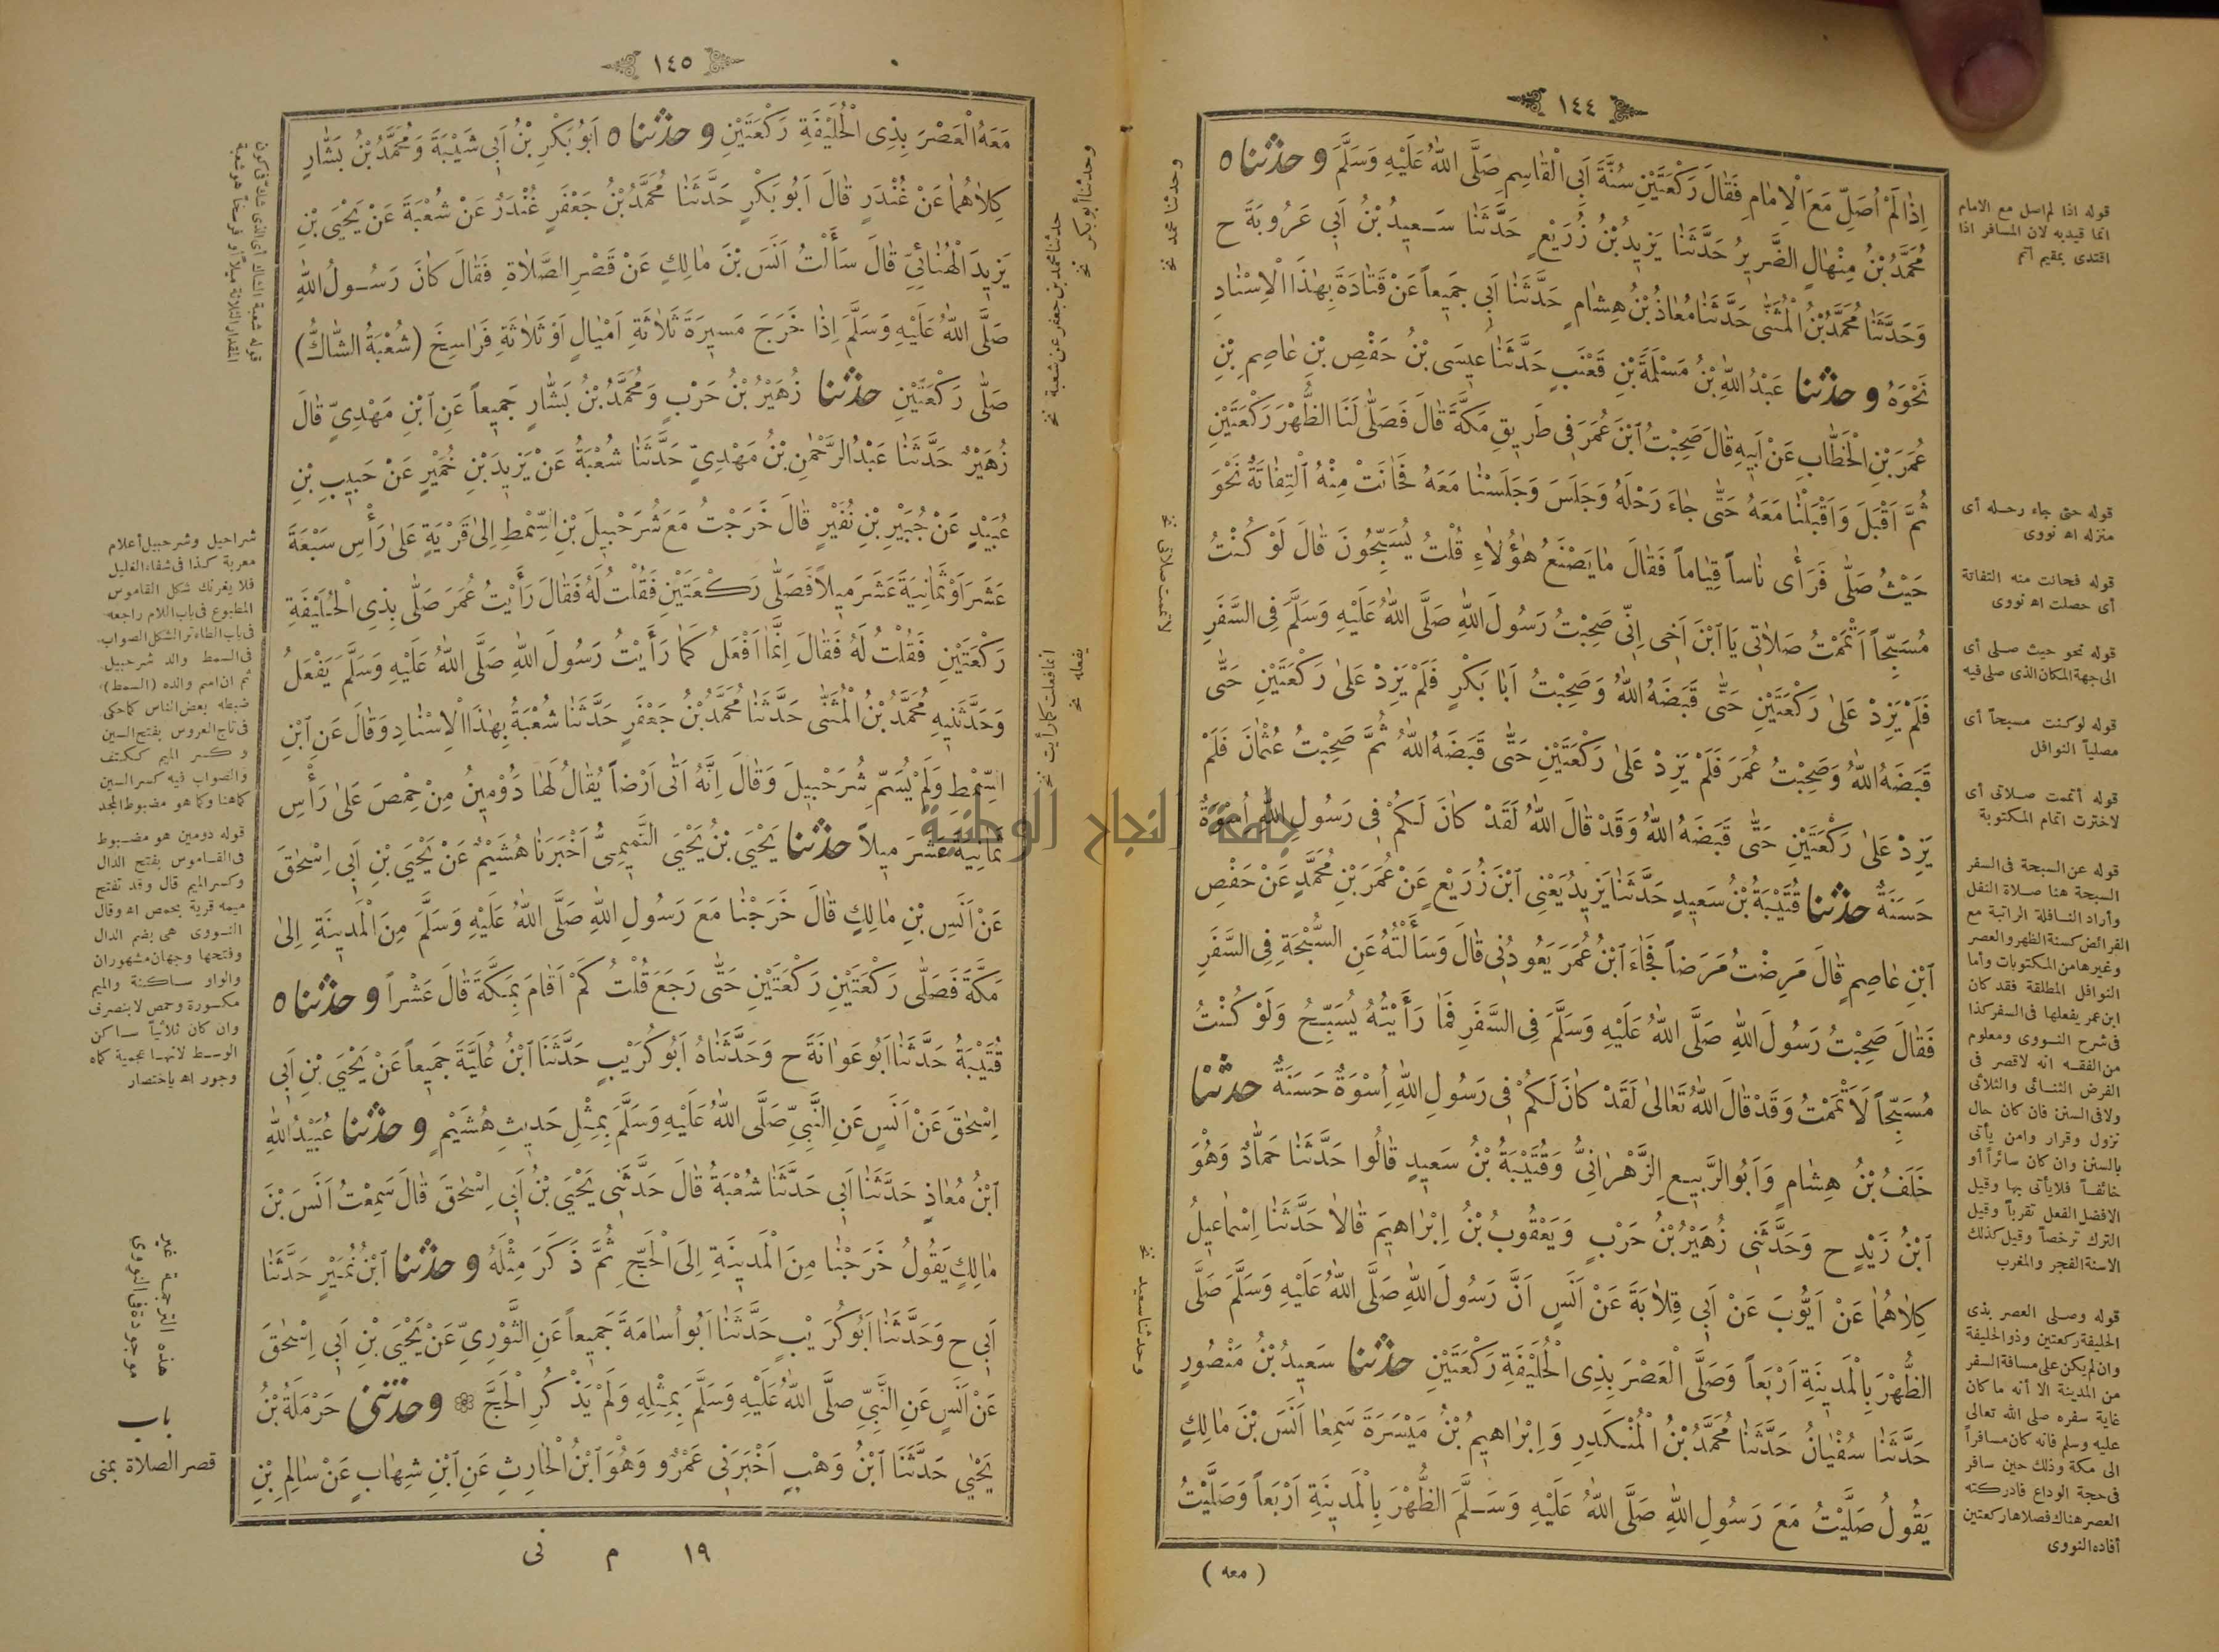 ١٤٤
اِذَا لَمْ اُصَلِّ مَعَ الْاِمَامِ فَقَالَ رَكْعَتَيْنِ سُنَّةَ اَبِي الْقَاسِمِ صَلَّى اللّٰهُ عَلَيْهِ وَسَلَّمَ و حدثناه
مُحَمَّدُ بْنُ مِنْهَالٍ الضَّرِيرُ حَدَّثَنَا يَزِيدُ بْنُ زُرَيْعٍ حَدَّثَنَا سَعِيدُ بْنُ اَبِي عَرُوبَةَ ح
وَحَدَّثَنَا مُحَمَّدُ بْنُ الْمُثَنّٰى حَدَّثَنَا مُعَاذُ بْنُ هِشَامٍ حَدَّثَنَا اَبِي جَمِيعاً عَنْ قَتَادَةَ بِهٰذَا الْاِسْنَادِ
نَحْوَهُ و حدثنا عَبْدُ اللّٰهِ بْنُ مَسْلَمَةَ بْنِ قَعْنَبٍ حَدَّثَنَا عِيسَى بْنُ حَفْصِ بْنِ عَاصِمِ بْنِ
عُمَرَ بْنِ الْخَطَّابِ عَنْ اَبِيهِ قَالَ صَحِبْتُ ابْنَ عُمَرَ فِي طَرِيقِ مَكَّةَ قَالَ فَصَلّٰى لَنَا الظُّهْرَ رَكْعَتَيْنِ
ثُمَّ اَقْبَلَ وَاَقْبَلْنَا مَعَهُ حَتّٰى جَاءَ رَحْلَهُ وَجَلَسَ وَجَلَسْنَا مَعَهُ فَحَانَتْ مِنْهُ الْتِفَاتَةٌ نَحْوَ
حَيْثُ صَلّٰى فَرَأٰى نَاساً قِيَاماً فَقَالَ مَا يَصْنَعُ هٰؤُلَاءِ قُلْتُ يُسَبِّحُونَ قَالَ لَوْ كُنْتُ
مُسَبِّحاً اَتْمَمْتُ صَلَاتِي يَا ابْنَ اَخِي اِنِّي صَحِبْتُ رَسُولَ اللّٰهِ صَلَّى اللّٰهُ عَلَيْهِ وَسَلَّمَ فِي السَّفَرِ
فَلَمْ يَزِدْ عَلٰى رَكْعَتَيْنِ حَتّٰى قَبَضَهُ اللّٰهُ وَصَحِبْتُ اَبَا بَكْرٍ فَلَمْ يَزِدْ عَلٰى رَكْعَتَيْنِ حَتّٰى
قَبَضَهُ اللّٰهُ وَصَحِبْتُ عُمَرَ فَلَمْ يَزِدْ عَلٰى رَكْعَتَيْنِ حَتّٰى قَبَضَهُ اللّٰهُ ثُمَّ صَحِبْتُ عُثْمَانَ فَلَمْ
يَزِدْ عَلٰى رَكْعَتَيْنِ حَتّٰى قَبَضَهُ اللّٰهُ وَقَدْ قَالَ اللّٰهُ لَقَدْ كَانَ لَكُمْ فِي رَسُولِ اللّٰهِ اُسْوَةٌ
حَسَنَةٌ حدثنا قُتَيْبَةُ بْنُ سَعِيدٍ حَدَّثَنَا يَزِيدُ يَعْنِي ابْنَ زُرَيْعٍ عَنْ عُمَرَ بْنِ مُحَمَّدٍ عَنْ حَفْصِ
ابْنِ عَاصِمٍ قَالَ مَرِضْتُ مَرَضاً فَجَاءَ ابْنُ عُمَرَ يَعُودُنِي قَالَ وَسَأَلْتُهُ عَنِ السُّبْحَةِ فِي السَّفَرِ
فَقَالَ صَحِبْتُ رَسُولَ اللّٰهِ صَلَّى اللّٰهُ عَلَيْهِ وَسَلَّمَ فِي السَّفَرِ فَمَا رَأَيْتُهُ يُسَبِّحُ وَلَوْ كُنْتُ
مُسَبِّحاً لَاَتْمَمْتُ وَقَدْ قَالَ اللّٰهُ تَعَالٰى لَقَدْ كَانَ لَكُمْ فِي رَسُولِ اللّٰهِ اِسْوَةٌ حَسَنَةٌ حدثنا
خَلَفُ بْنُ هِشَامٍ وَاَبُو الرَّبِيعِ الزَّهْرَانِيُّ وَقُتَيْبَةُ بْنُ سَعِيدٍ قَالُوا حَدَّثَنَا حَمَّادٌ وَهُوَ
ابْنُ زَيْدٍ ح وَحَدَّثَنِي زُهَيْرُ بْنُ حَرْبٍ وَيَعْقُوبُ بْنُ اِبْرَاهِيمَ قَالَا حَدَّثَنَا اِسْمَاعِيلُ
كِلَاهُمَا عَنْ اَيُّوبَ عَنْ اَبِي قِلَابَةَ عَنْ اَنَسٍ اَنَّ رَسُولَ اللّٰهِ صَلَّى اللّٰهُ عَلَيْهِ وَسَلَّمَ صَلَّى
الظُّهْرَ بِالْمَدِينَةِ اَرْبَعاً وَصَلَّى الْعَصْرَ بِذِي الْحُلَيْفَةِ رَكْعَتَيْنِ حدثنا سَعِيدُ بْنُ مَنْصُورٍ
حَدَّثَنَا سُفْيَانُ حَدَّثَنَا مُحَمَّدُ بْنُ الْمُنْكَدِرِ وَاِبْرَاهِيمُ بْنُ مَيْسَرَةَ سَمِعَا اَنَسَ بْنَ مَالِكٍ
يَقُولُ صَلَّيْتُ مَعَ رَسُولِ اللّٰهِ صَلَّى اللّٰهُ عَلَيْهِ وَسَلَّمَ الظُّهْرَ بِالْمَدِينَةِ اَرْبَعاً وَصَلَّيْتُ
( معه )
قوله اذا لم اصل مع الامام
انما قيد به لان المسافر اذا
اقتدى بمقيم أتم
قوله حتى جاء رحله أى
منزله اه نووى
قوله فحانت منه التفاتة
أى حصلت اه نووى
قوله نحو حيث صلى أى
الى جهة المكان الذى صلى فيه
قوله لوكنت مسبحاً أى
مصلياً النوافل
قوله أتممت صلاتى أى
لاخترت اتمام المكتوبة
قوله عن السبحة فى السفر
السبحة هنا صلاة النفل
وأراد النافلة الراتبة مع
الفرائض كسنة الظهر والعصر
وغيرها من المكتوبات وأما
النوافل المطلقة فقد كان
ابن عمر يفعلها فى السفر كذا
فى شرح النووى ومعلوم
من الفقه انه لا قصر فى
الفرض الثنائى والثلاثى
ولا فى السنن فان كان حال
نزول وقرار وامن يأتى
بالسنن وان كان سائراً أو
خائفاً فلا يأتى بها وقيل
الافضل الفعل تقرباً وقيل
الترك ترخصاً وقيل كذلك
الا سنة الفجر والمغرب
قوله وصلى العصر بذى
الحليفة ركعتين وذو الحليفة
وان لم يكن على مسافة السفر
من المدينة الا أنه ما كان
غاية سفره صلى الله تعالى
عليه وسلم فانه كان مسافراً
الى مكة وذلك حين سافر
فى حجة الوداع فادركته
العصر هناك فصلاها ركعتين
أفاده النووى
وحدثنا محمد نخ
لاتممت صلاتى نخ
وحدثنا سعيد نخ
١٤٥
مَعَهُ الْعَصْرَ بِذِي الْحُلَيْفَةِ رَكْعَتَيْنِ و حدثناه اَبُو بَكْرِ بْنُ اَبِي شَيْبَةَ وَمُحَمَّدُ بْنُ بَشَّارٍ
كِلَاهُمَا عَنْ غُنْدَرٍ قَالَ اَبُو بَكْرٍ حَدَّثَنَا مُحَمَّدُ بْنُ جَعْفَرٍ غُنْدَرٌ عَنْ شُعْبَةَ عَنْ يَحْيَى بْنِ
يَزِيدَ الْهُنَائِيِّ قَالَ سَأَلْتُ اَنَسَ بْنَ مَالِكٍ عَنْ قَصْرِ الصَّلَاةِ فَقَالَ كَانَ رَسُولُ اللّٰهِ
صَلَّى اللّٰهُ عَلَيْهِ وَسَلَّمَ اِذَا خَرَجَ مَسِيرَةَ ثَلَاثَةِ اَمْيَالٍ اَوْ ثَلَاثَةِ فَرَاسِخَ (شُعْبَةُ الشَّاكُّ)
صَلّٰى رَكْعَتَيْنِ حدثنا زُهَيْرُ بْنُ حَرْبٍ وَمُحَمَّدُ بْنُ بَشَّارٍ جَمِيعاً عَنِ ابْنِ مَهْدِيٍّ قَالَ
زُهَيْرٌ حَدَّثَنَا عَبْدُ الرَّحْمٰنِ بْنُ مَهْدِيٍّ حَدَّثَنَا شُعْبَةُ عَنْ يَزِيدَ بْنِ خُمَيْرٍ عَنْ حَبِيبِ بْنِ
عُبَيْدٍ عَنْ جُبَيْرِ بْنِ نُفَيْرٍ قَالَ خَرَجْتُ مَعَ شُرَحْبِيلَ بْنِ السِّمْطِ اِلٰى قَرْيَةٍ عَلٰى رَأْسِ سَبْعَةَ
عَشَرَ اَوْ ثَمَانِيَةَ عَشَرَ مِيلاً فَصَلّٰى رَكْعَتَيْنِ فَقُلْتُ لَهُ فَقَالَ رَأَيْتُ عُمَرَ صَلّٰى بِذِي الْحُلَيْفَةِ
رَكْعَتَيْنِ فَقُلْتُ لَهُ فَقَالَ اِنَّمَا اَفْعَلُ كَمَا رَأَيْتُ رَسُولَ اللّٰهِ صَلَّى اللّٰهُ عَلَيْهِ وَسَلَّمَ يَفْعَلُ
وَحَدَّثَنِيهِ مُحَمَّدُ بْنُ الْمُثَنّٰى حَدَّثَنَا مُحَمَّدُ بْنُ جَعْفَرٍ حَدَّثَنَا شُعْبَةُ بِهٰذَا الْاِسْنَادِ وَقَالَ عَنِ ابْنِ
السِّمْطِ وَلَمْ يُسَمِّ شُرَحْبِيلَ وَقَالَ اِنَّهُ اَتٰى اَرْضاً يُقَالُ لَهَا دَوْمِينُ مِنْ حِمْصَ عَلٰى رَأْسِ
ثَمَانِيَةَ عَشَرَ مِيلاً حدثنا يَحْيَى بْنُ يَحْيَى التَّمِيمِيُّ اَخْبَرَنَا هُشَيْمٌ عَنْ يَحْيَى بْنِ اَبِي اِسْحٰقَ
عَنْ اَنَسِ بْنِ مَالِكٍ قَالَ خَرَجْنَا مَعَ رَسُولِ اللّٰهِ صَلَّى اللّٰهُ عَلَيْهِ وَسَلَّمَ مِنَ الْمَدِينَةِ اِلٰى
مَكَّةَ فَصَلّٰى رَكْعَتَيْنِ رَكْعَتَيْنِ حَتّٰى رَجَعَ قُلْتُ كَمْ اَقَامَ بِمَكَّةَ قَالَ عَشْراً و حدثناه
قُتَيْبَةُ حَدَّثَنَا اَبُو عَوَانَةَ ح وَحَدَّثَنَاهُ اَبُو كُرَيْبٍ حَدَّثَنَا ابْنُ عُلَيَّةَ جَمِيعاً عَنْ يَحْيَى بْنِ اَبِي
اِسْحٰقَ عَنْ اَنَسٍ عَنِ النَّبِيِّ صَلَّى اللّٰهُ عَلَيْهِ وَسَلَّمَ بِمِثْلِ حَدِيثِ هُشَيْمٍ و حدثنا عُبَيْدُ اللّٰهِ
ابْنُ مُعَاذٍ حَدَّثَنَا اَبِي حَدَّثَنَا شُعْبَةُ قَالَ حَدَّثَنِي يَحْيَى بْنُ اَبِي اِسْحٰقَ قَالَ سَمِعْتُ اَنَسَ بْنَ
مَالِكٍ يَقُولُ خَرَجْنَا مِنَ الْمَدِينَةِ اِلَى الْحَجِّ ثُمَّ ذَكَرَ مِثْلَهُ و حدثنا ابْنُ نُمَيْرٍ حَدَّثَنَا
اَبِي ح وَحَدَّثَنَا اَبُو كُرَيْبٍ حَدَّثَنَا اَبُو اُسَامَةَ جَمِيعاً عَنِ الثَّوْرِيِّ عَنْ يَحْيَى بْنِ اَبِي اِسْحٰقَ
عَنْ اَنَسٍ عَنِ النَّبِيِّ صَلَّى اللّٰهُ عَلَيْهِ وَسَلَّمَ بِمِثْلِهِ وَلَمْ يَذْكُرِ الْحَجَّ ۞ و حدثنى حَرْمَلَةُ بْنُ
يَحْيٰى حَدَّثَنَا ابْنُ وَهْبٍ اَخْبَرَنِي عَمْرٌو وَهُوَ ابْنُ الْحَارِثِ عَنِ ابْنِ شِهَابٍ عَنْ سَالِمِ بْنِ
١٩ م نى
وحدثنا أبو بكر نخ
حدثنا محمد بن جعفر عن شعبة نخ
يفعله نخ
انما فعلت كما رأيت نخ
قوله شعبة الشاك أى الذى شك فى كون
المقدار الثلاثة ميلاً أو فرسخاً هو شعبة
شراحيل وشرحبيل أعلام
معربة كذا فى شفاء الغليل
فلا يغرنك شكل القاموس
المطبوع فى باب اللام راجعه
فى باب الطاء تر الشكل الصواب
فى السمط والد شرحبيل
ثم ان اسم والده (السمط)
ضبطه بعض الناس كما حكى
فى تاج العروس بفتح السين
وكسر الميم ككتف
والصواب فيه كسر السين
كما هنا وكما هو مضبوط المجد
قوله دومين هو مضبوط
فى القاموس بفتح الدال
وكسر الميم قال وقد تفتح
ميمه قرية بحمص اه وقال
النووى هى بضم الدال
وفتحها وجهان مشهوران
والواو ساكنة والميم
مكسورة وحمص لا ينصرف
وان كان ثلاثياً ساكن
الوسط لانها عجمية كماه
وجور اه باختصار
هذه الترجمة غير
موجودة فى النووى
باب
قصر الصلاة بمنى
جامعة النجاح الوطنية